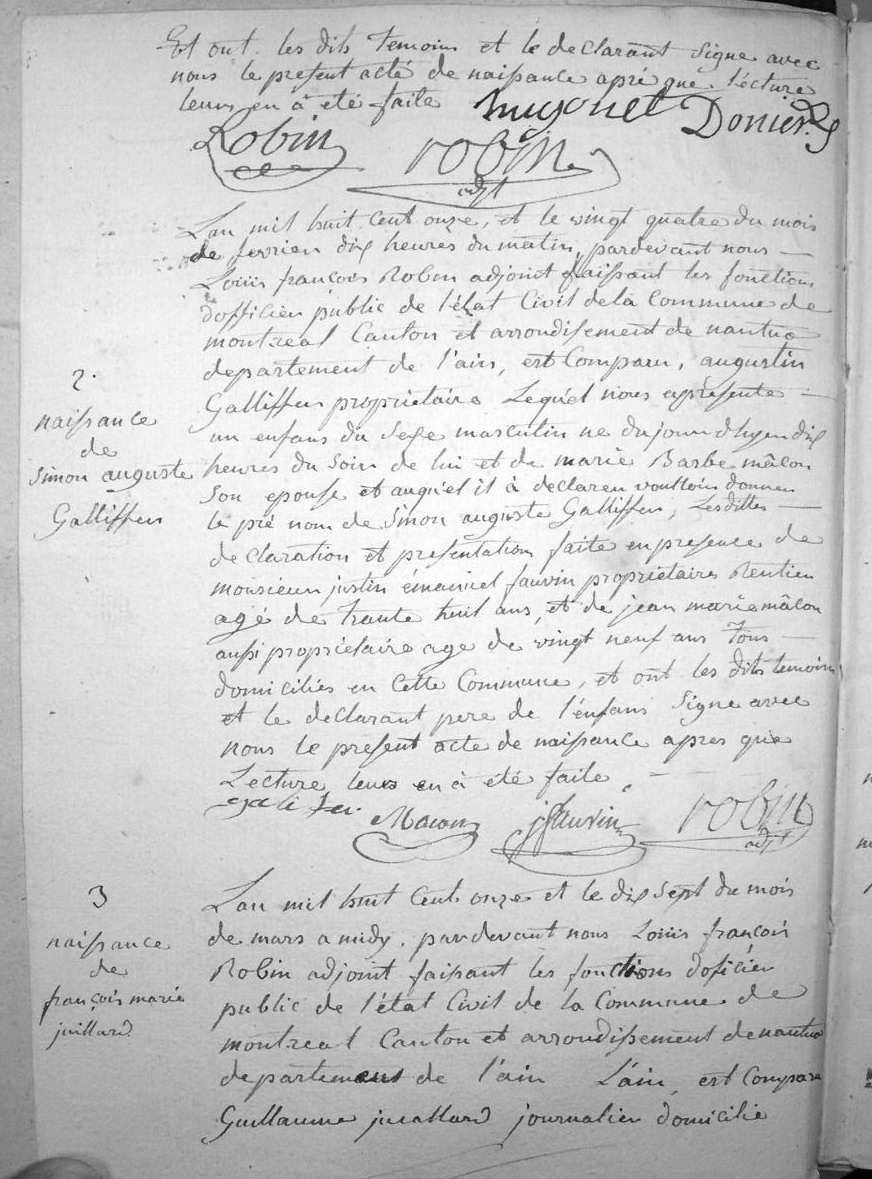 Et ont les dits temoins et le declarant signe avec
nous le present acté de naissance apré que lécture
leurs en à été faite hugonet Donier
Robin robin
adjt
Lan mil huit cent onze, et le vingt quatre du mois
de fevrier dix heures du matin, pardevant nous
Louis françois Robin adjoint faissant les fonctions
dofficier public de létat Civil dela Commune de
montreal Canton et arrondissement de nantua
departement de l'ain, est Comparu, augustin
2.
naissance
de
Simon auguste
Galliffer
Galliffer propriétaire Lequel nous apresente
un enfans du Sexe masculin ne dujour dhyer dix
heures du Soir de lui et de marie Barbe mâcon
Son epouse et auquel il à declarer voulloir donner
le pré nom de Simon auguste Galliffer, Lesdittes
declaration et presentation faite en presence de
monsieur justin émanuel fauvin propriétaire Rentier
agé de trante huit ans, et de jean marie mâcon
aussi propriétaire age de vingt neuf ans Tous
domiciliés en Cette Commune, et ont les dits temoins
et le declarant pere de l'enfans Signe avec
nous le present acte de naissance apres que
Lecture leurs en à été faite
Macon jfauvin robin
adjt
3
naissance
de
françois marie
juillard
Lan mil huit Cent onze et le dix sept du mois
de mars a midy, pardevant nous Louis françois
Robin adjoint faissant les fonctions doficier
public de l'état Civil de la Commune de
montreal Canton et arrondissement de nantua
departement de l'ain L'ain, est Comparu
Guillaume juillard journalier domicilié